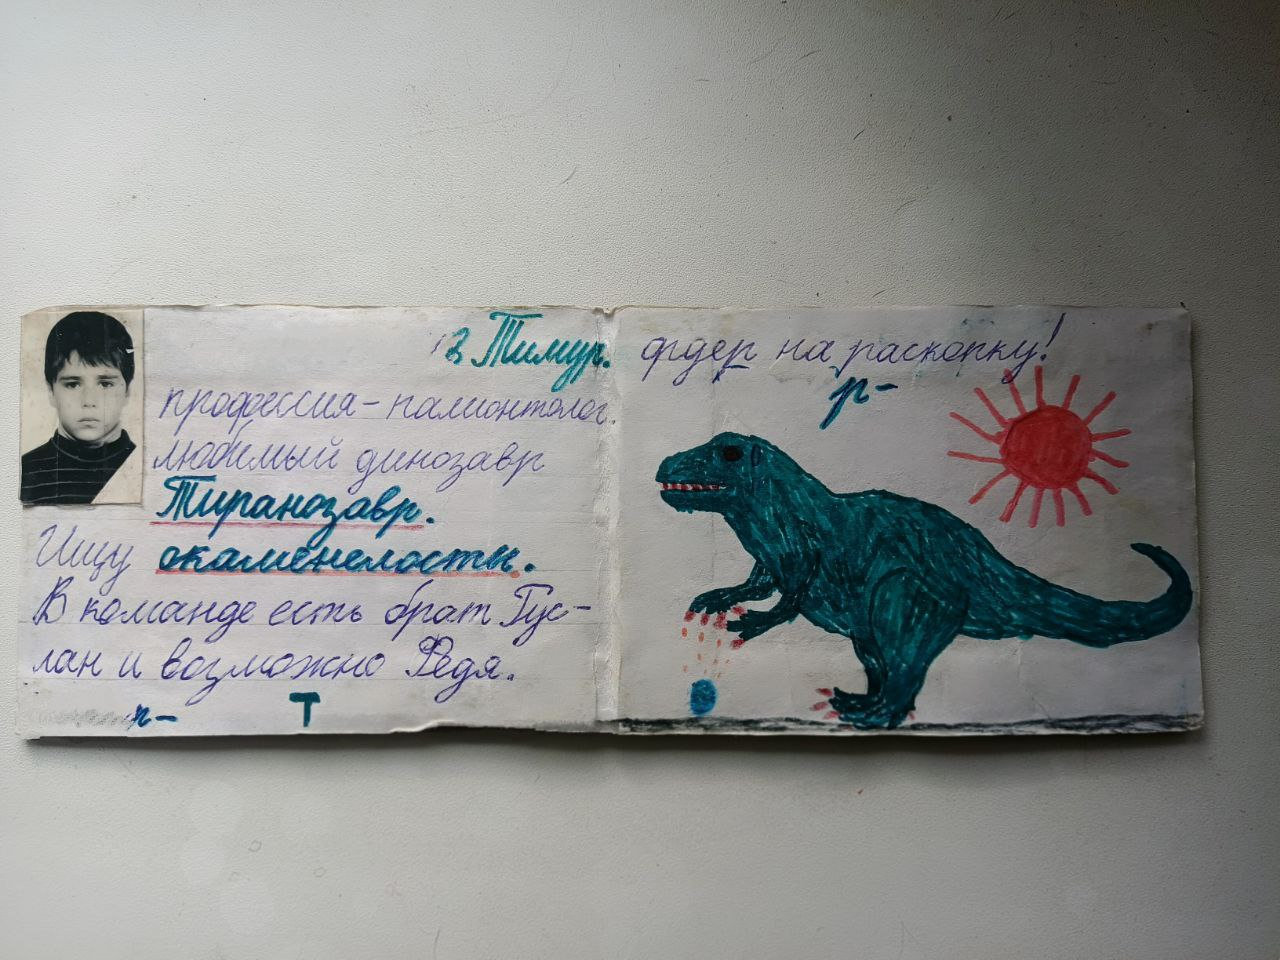 г. Тимур.
профессия - палионтолог.
любимый динозавр
Тиранозавр.
Ищу окаменелосты.
В команде есть брат Гус-
лан и возможно Федя.
п-
Т
фрдер на раскопку!
р-